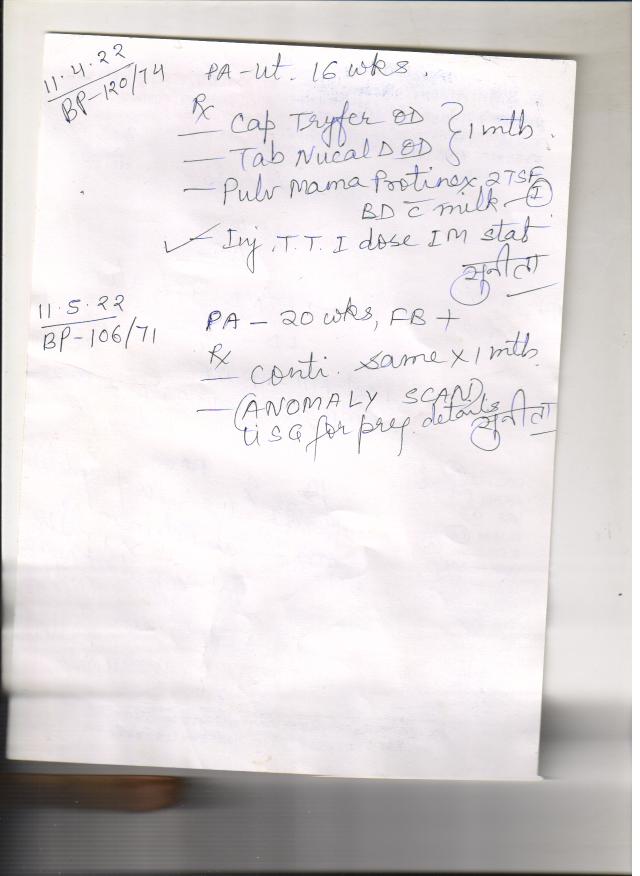 11.4.22
BP-120/74
PA-ut. 16 wks.
Rx
— Cap Tryfer OD } 1 mth.
— Tab Nucal D OD
— Pulv Mama Protinex 2 TSF
BD c̄ milk — I
✓ — Inj. T.T. I dose IM stat
सुनीता
11.5.22
BP-106/71
PA - 20 wks, FB +
Rx
— conti. same x 1 mth.
— (ANOMALY SCAN)
USG for preg. details
सुनीता